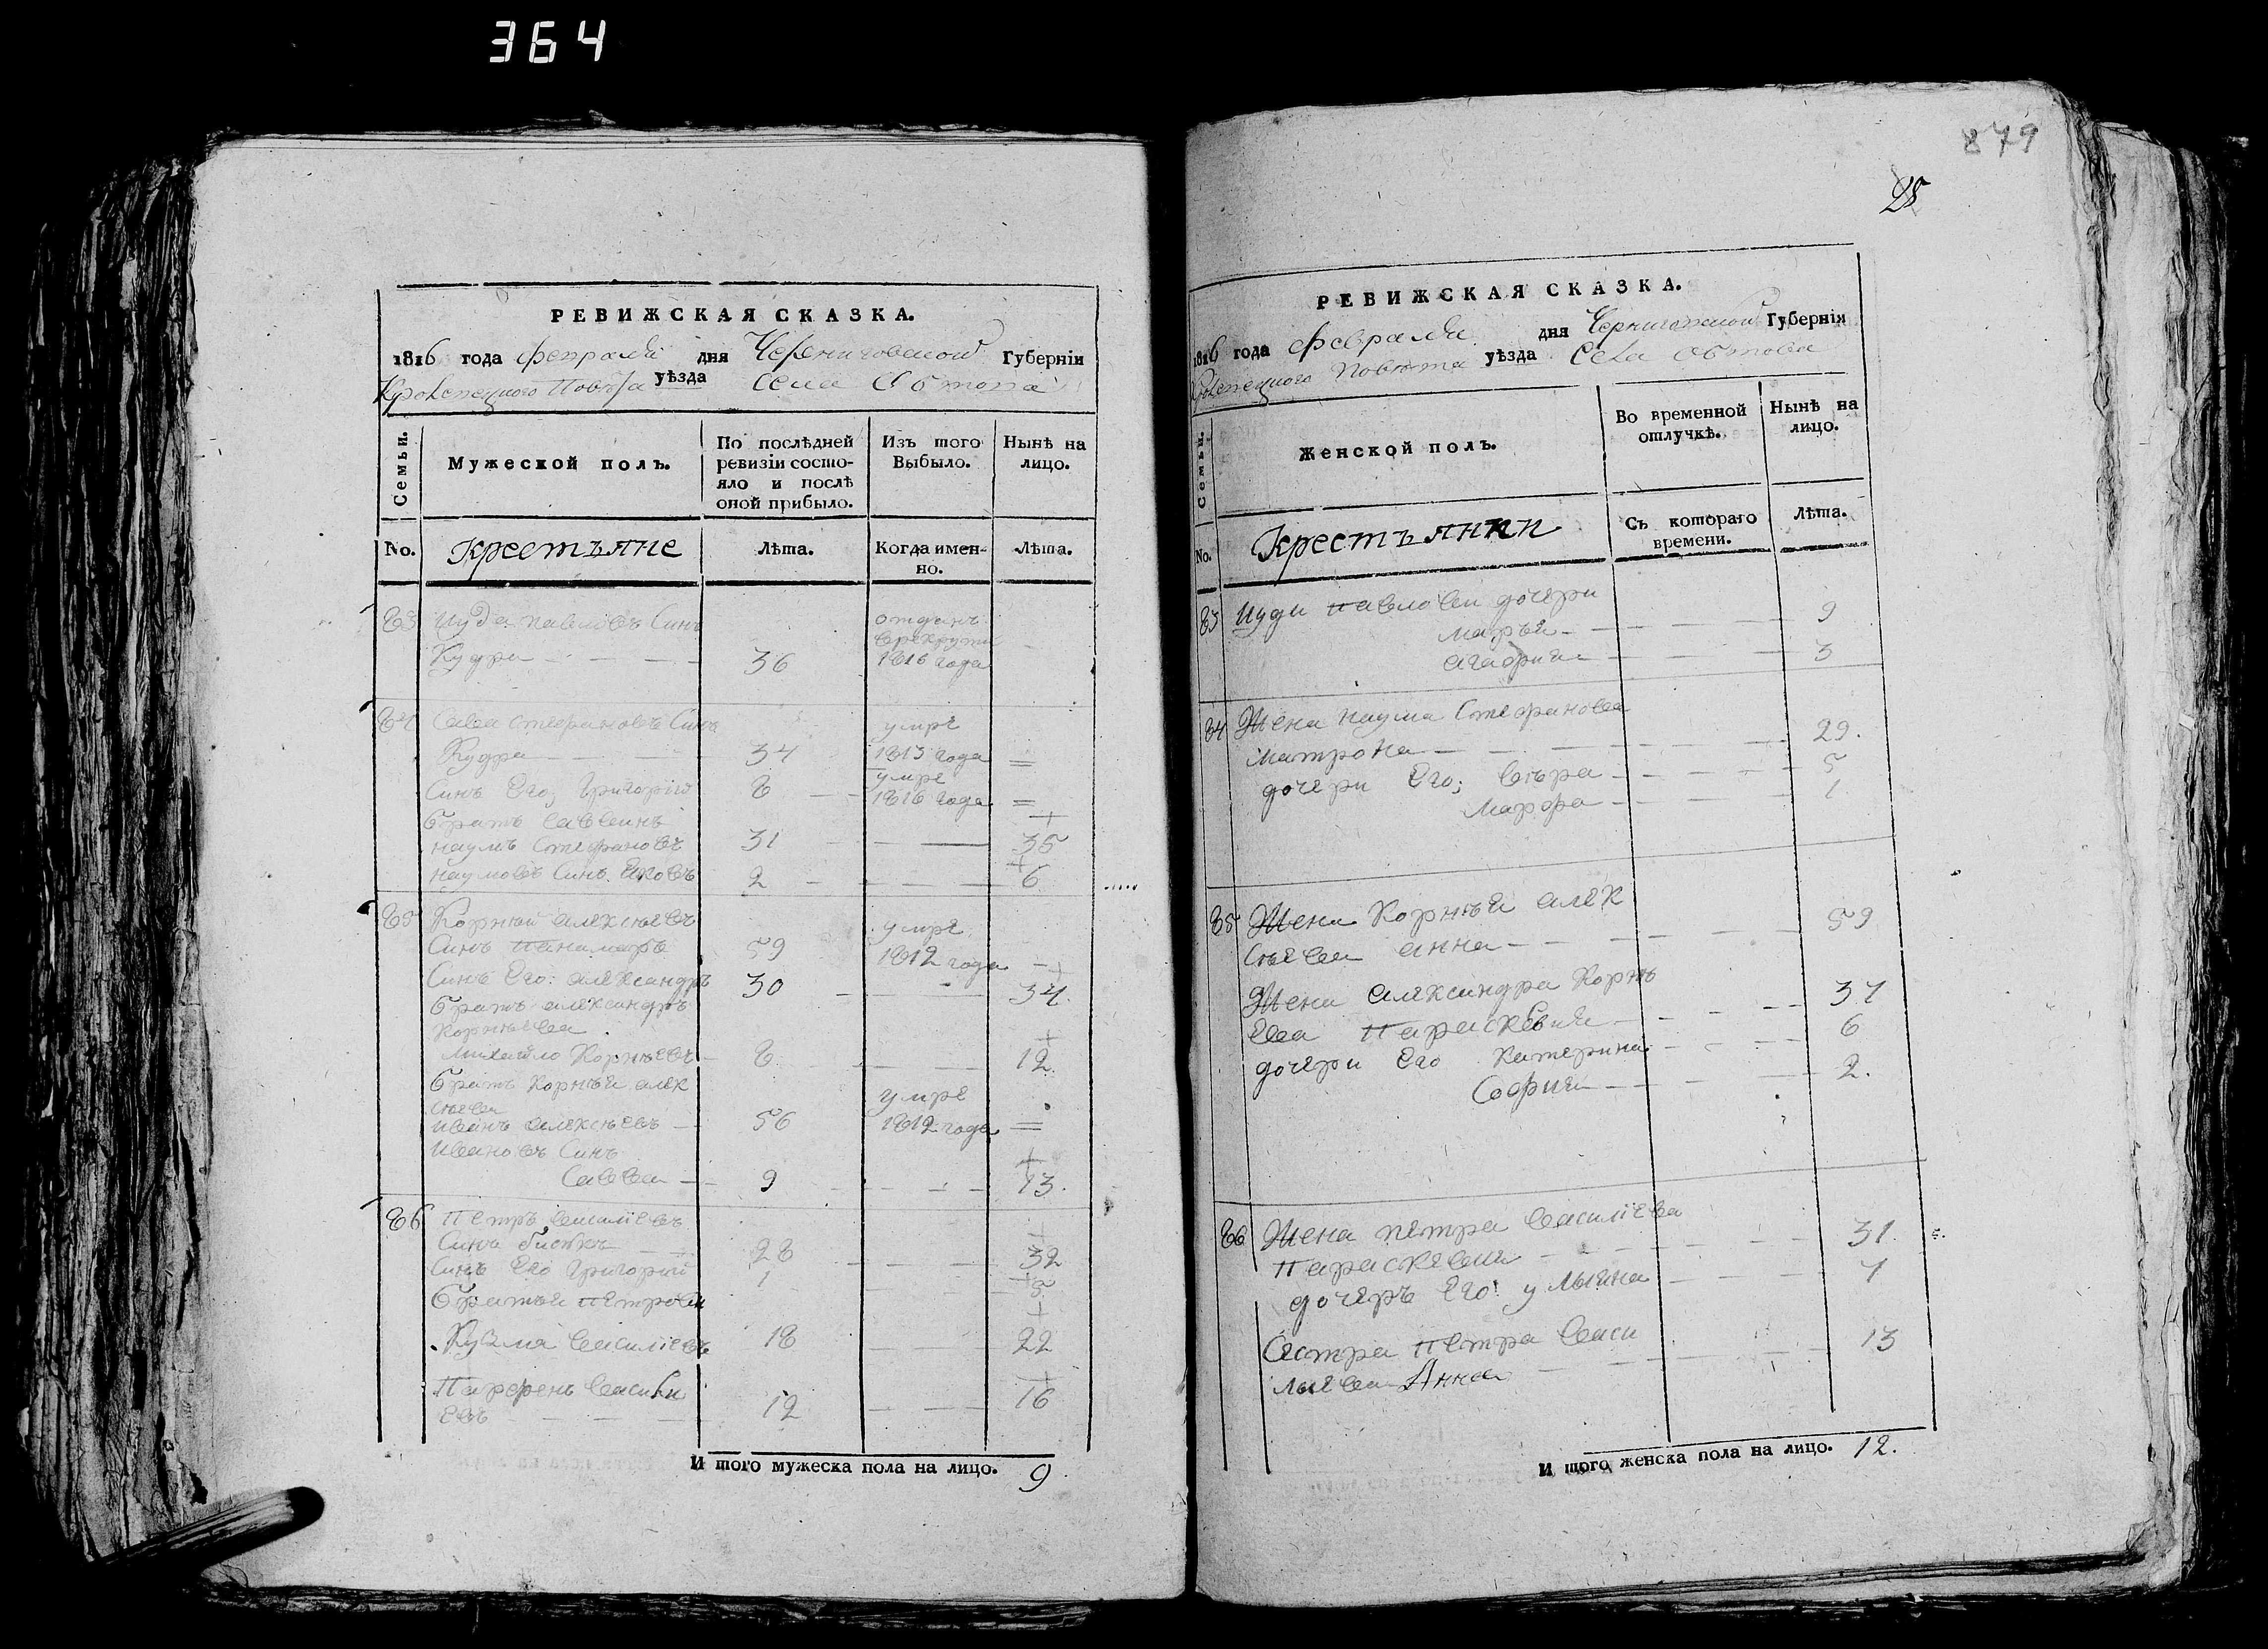 364
РЕВИЖСКАЯ СКАЗКА.
1816 года февраля дня Черниговской Губерніи
Кролевецкого Повѣта уѣзда Села Обтова
Семьи.
Мужеской полъ.
По послѣдней ревизіи состо-
яло и послѣ
оной прибыло.
Изъ того
Выбыло.
Нынѣ на
лицо.
No.
Крестъяне
Лѣта.
Когда имен-
но.
Лѣта.
83 Иуда павловъ Синъ отданъ
врекрути
Кудра 36 1816 года
84 Сава стефановъ Синъ умре
Кудра 34 1813 года
умре
Синъ Его; Григорій 8 1816 года
братъ Саввинъ
наумъ Стефановъ 31 35
наумовъ Синъ Яковъ 2 6
85 Корнѣй алексѣевъ умре
Синъ панамаръ 59 1812 года
Синъ Его: александръ 30 34.
братъ александръ
Корнѣева
михайло Корнѣевъ 8 12.
братъ Корнѣя алек умре
сѣева
иванъ алексѣевъ 56 1812 года
ивановъ Синъ
Савва 9 13.
86 петръ василіевъ
Синъ 28 32
Синъ Его Григорій 1 5
братья петрови
Кузма василіевъ 18 22
Парфенъ васили
евъ 12 16
И того мужеска пола на лицо. 9.
879
25
РЕВИЖСКАЯ СКАЗКА.
1816 года февраля дня Черниговской Губернія
Кролевецкого Повѣта уѣзда Села Обтова
Семьи.
Женской полъ.
Во временной
отлучкѣ.
Нынѣ на
лицо.
No.
Крестъянки
Съ котораго
времени.
Лѣта.
83 Иуди павлови дочери
маръя 9
агафия 3
84 Жена наума Стефанова
матрона 29.
дочери Его; вѣра 5
марфа 1
85 Жена Корнѣя алек
сѣева анна 59
Жена александра Корнѣ
ева параскевия 31
дочери Его Катерина 6
София 2.
86 Жена петра василіева
параскевия 31.
дочеръ Его: улияна 1
Сестра петра васи
лиева Анна 13
И того женска пола на лицо. 12.